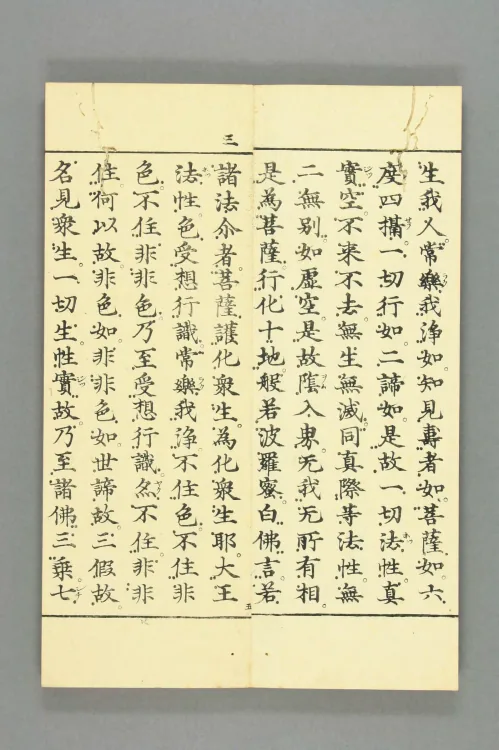 生我人常樂我淨如知見壽者如菩薩如六
度四攝一切行如二諦如是故一切法性真
實空不来不去無生無滅同真際等法性無
二無别如虚空是故陰入界无我无所有相
是為菩薩行化十地般若波羅蜜白佛言若
三
諸法尒者菩薩護化衆生為化衆生耶大王
法性色受想行識常樂我淨不住色不住非
色不住非非色乃至受想行識亦不住非非
住何以故非色如非非色如世諦故三假故
名見衆生一切生性實故乃至諸佛三乗七
五